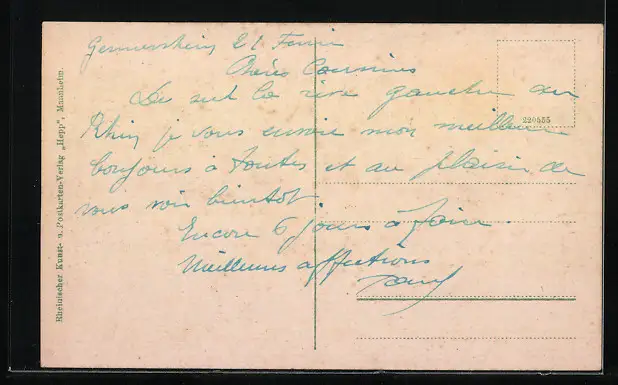 Germersheim 21 Fevrier
Chères Cousines
De sur la rive gauche du
Rhin je vous envoie mon meilleure
bonjours à toutes et au plaisir de
vous voir bientôt
Encore 6 jours à faire.
Meilleures affections
220555
Rheinischer Kunst- u. Postkarten-Verlag „Hepp", Mannheim.